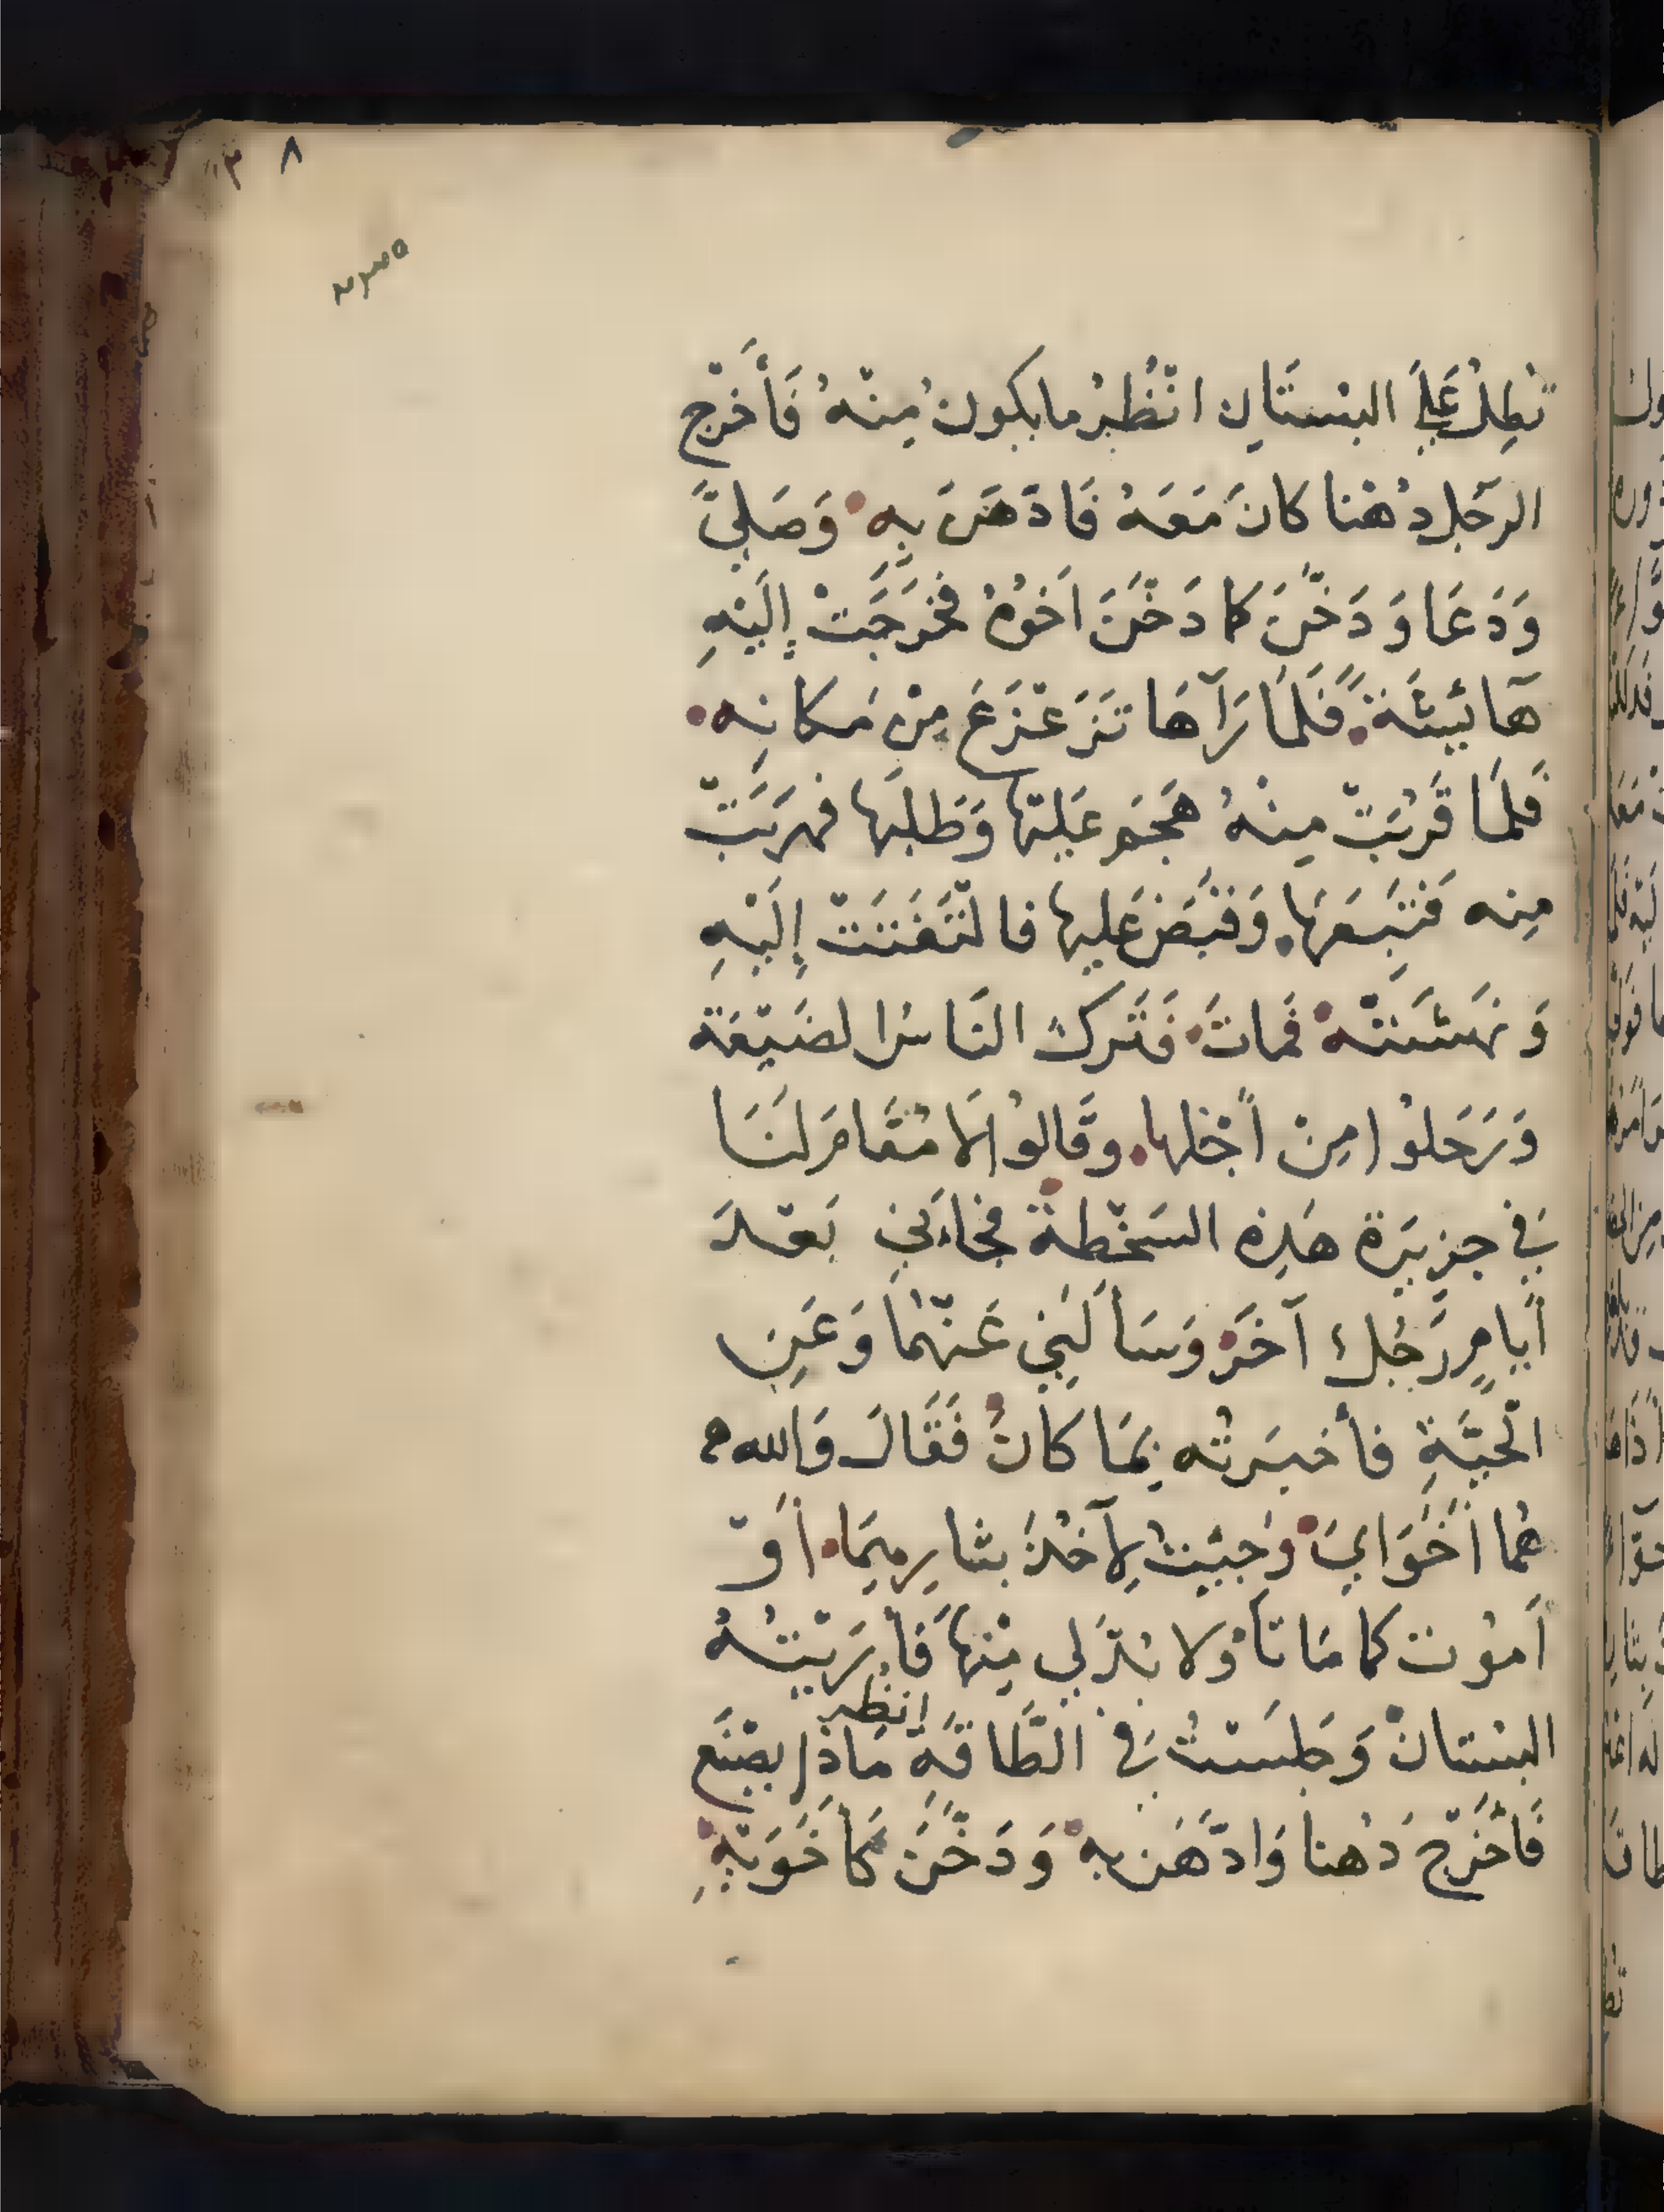 ٨
تُطِلُ عَلَى البُسْتَانِ انْظُرْ ما يكونُ مِنْهُ فَأَخْرَجَ
الرجُل دُهْنا كانَ مَعَهُ فَادّهَنَ بِهِ وَصَلَّى
وَدَعَا وَدَخَّنَ كما دَخَّنَ اَخُوُهُ فخَرَجَتْ إِلَيْهِ
هآئِيَشَةً فَلَمّا رَآهَا تَزَعْزَعَ مِنْ مَكانِهِ
فَلمَّا قَرُبَتْ مِنْهُ هَجَمَ عَلَيْهَا وَطَلبَها فهَرَبَتْ
مِنه فَتَبِعَهَا وَقَبَضَ عَليها فالتَفَتَتْ إِلَيْهِ
وَنَهَشَتْهُ فمَاتَ فَتَركَ النَاسُ الضَيْعَة
وَرَحَلوُا مِنْ أَجْلها وقَالوُا لَا مُقَامَ لَنَا
فِي جزِيرَة هَذِه السَخْطةْ فجَاءَنِي بَعْدَ
أَيامٍ رَجُلٌ آخَرْ وَسَأَلَنِي عَنْهُمَا وَعَنِ
الْحَيَّةِ فأخبَرتُه بِمَا كَانَ فَقَالَ وَالله
هُما أَخَوَايَ وَجِئِتُ لِآخُذَ بثارِهِمَا أَوْ
أَموُت كما مَاتَا ولا بُدَّ لِي مْنهَا فَأَرَيْتُهُ
البُسْتانْ وَجلَسْتُ فِي الطَّاقَةِ انظر مَاذَا يصْنَع
فَأَخْرَجَ دُهنا وَادَّهَنَ بِهِ وَدَخَّنَ كَأَخَوَيْهِ